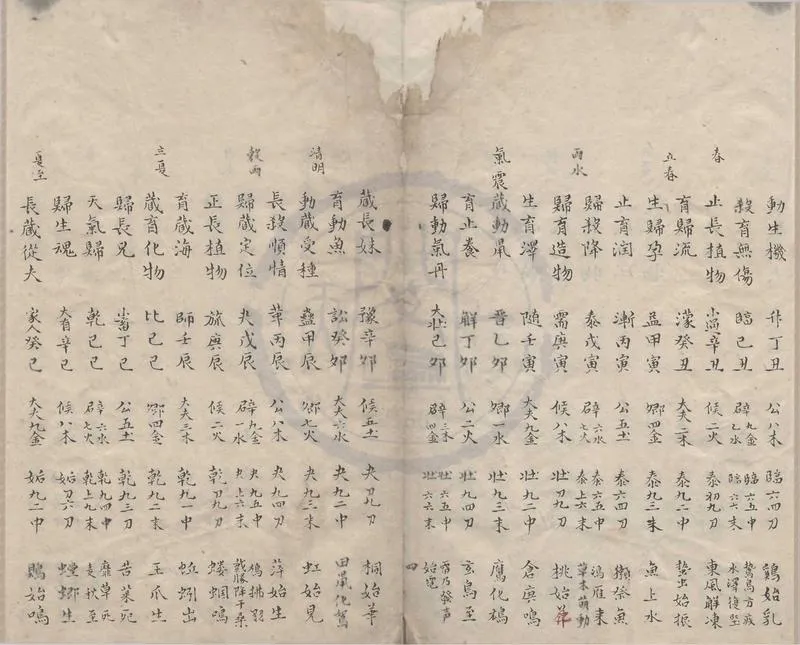 春
動生機 升丁丑 公八木 臨六四刀 鷄始乳
殺育無傷 臨己丑 辟九金 乙水 臨六五中 臨六六末 鷙鳥方疾 水澤復堅
止長植物 小過辛丑 候二火 泰初九刀 東風解凍
立春
育歸流 濛癸丑 大夫二木 泰九二中 蟄虫始振
生歸孕 益甲寅 卿四金 泰九三末 魚上水
止育潤 漸丙寅 公五土 泰六四刀 獺祭魚
雨水
歸殺降 泰戊寅 辟六水 七火 泰六五中 泰上六末 鴻雁来 草木萌動
歸育造物 需庚寅 候八木 壯初九刀 桃始華
生育澤 随壬寅 大夫九金 壯九二中 倉庚鳴
氣震藏動鼡 晋乙夘 卿一水 壯九三末 鷹化鳩
育止養 解丁夘 公二火 壯九四刀 玄鳥至
歸動氣丹 大壯己夘 辟三木 四金 壯六五中 壯六六末 雷乃發声 始電
四
藏長妹 豫辛夘 候五土 夬刀九刀 桐始華
育動魚 訟癸夘 大夫六水 夬九二中 田鼠化鴽
清明
動藏受種 蠱甲辰 卿七火 夬九三末 虹始見
長殺順情 革丙辰 公八木 夬九四刀 萍始生
穀雨
歸藏定位 夬戊辰 辟九金 一水 夬九五中 夬上六末 鳴鳩拂羽 戴勝降于桑
正長植物 旅庚辰 候二火 乾刀九刀 螻蟈鳴
育藏海 師壬辰 大夫三木 乾九二中 蚯蚓出
立夏
藏育化物 比乙巳 卿四金 乾九三末 王瓜生
歸長兄 小畜丁巳 公五土 乾九三刀 苦菜死
天氣歸 乾己巳 辟六水 七火 乾九五中 乾上九末 靡草死 麦秋至
歸生魂 大有辛巳 候八木 姤刀六刀 螳螂生
夏至
長藏從夫 家人癸巳 大夫九金 姤九二中 鵙始鳴